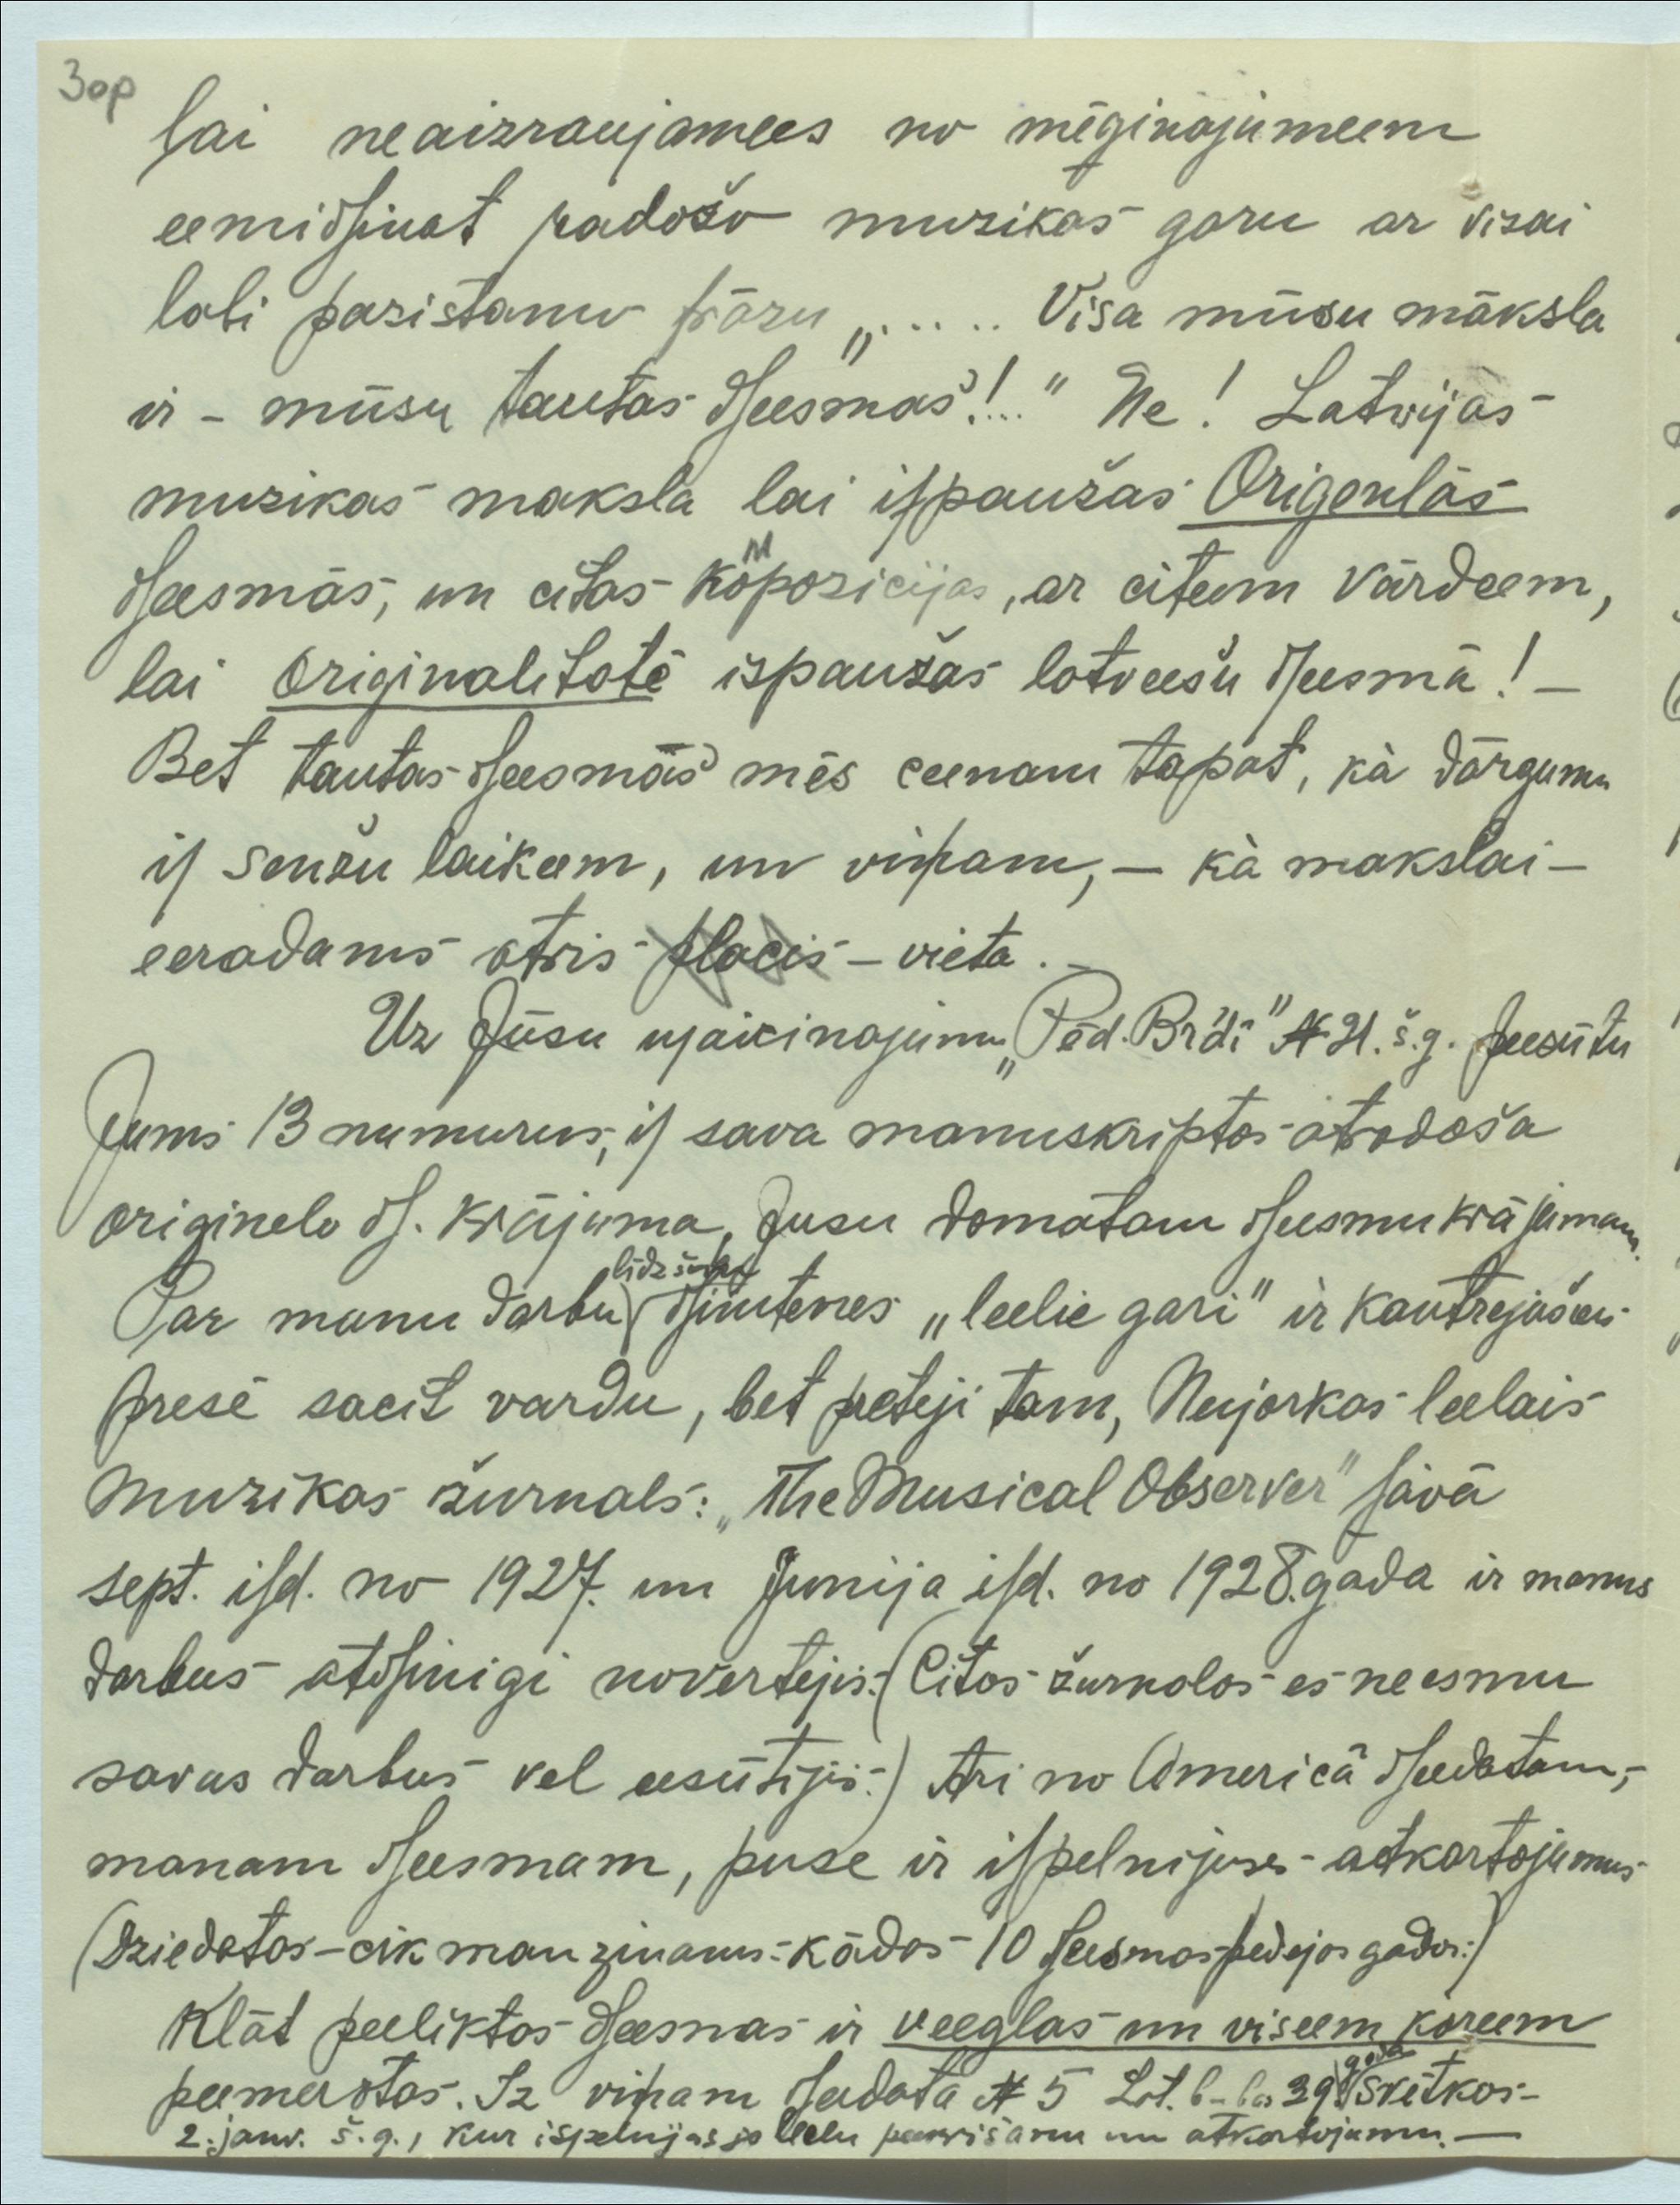 3op
lai neaizraujamees no mēginajumeem
eemidſinat radošo muzikas garu ar visai
labi pazistamo frāzu „..... Visa mūsu māksla
ir - mūsu tautas dſeesmas!..." Ne! Latvijas
muzikas maksla lai iſpaužas Origenlās
dſeesmās, un citas kompozicijas, ar citeem vārdeem,
lai originalitatē ispaužas latveešu dſeesmā! —
Bet tautas dſeesmās mēs ceenam tapat, kà dārgumu
iſ senžu laikeem, un viņam, — kà makslai —
eeradams otris placis - vieta. —
Uz Jūsu uſaicinajumu „Pēd. Brīdī" № 21. š.g. peesūtu
Jums 13 numurus, iſ sava manuskriptos atrodoša
originelo dſ. krājuma, Jusu domatam dſeesmu krājumam.
līdz šim
Par manu darbu dſimtenes „leelie gari" ir kautrejušees
presē sacit vardu, bet preteji tam, Nujorkas leelais
Muzikas žurnals: „The Musical Observer" ſavā
sept. iſd. no 1927. un Junija iſd. no 1928. gada ir manus
darbus atſinigi novertejis. (Citos žurnalos es neesmu
savus darbus vel eesūtijis.) Ari no Americā dſeedatam,
manam dſeesmam, puse ir iſpelnijuses atkartojumus
(Dziedatas - cik man zinams - kādas 10 dſeesmas pedejos gados.)
Klāt peeliktas dſeesmas ir veeglas un viseem koreem
peemerotas. Iz viņam dſeedata № 5 Lat. b-bas 39 gada svētkos
2. janv. š.g., kur ispelnijas jo leelu peekrišanu un atkartojumu. —